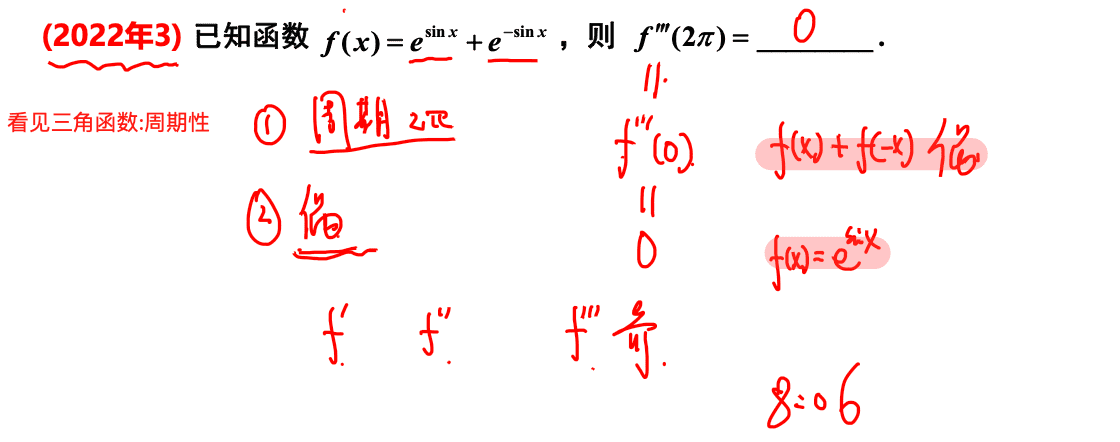 (2022年3) 已知函数 f(x) = e^{sin x} + e^{-sin x} ，则 f'''(2π) = 0 .
看见三角函数:周期性
① 周期 2π
② 偶
||
f'''(0)
||
0
f(x) + f(-x) 偶
f(x) = e^{sin x}
f' f'' f''' 奇
8:06